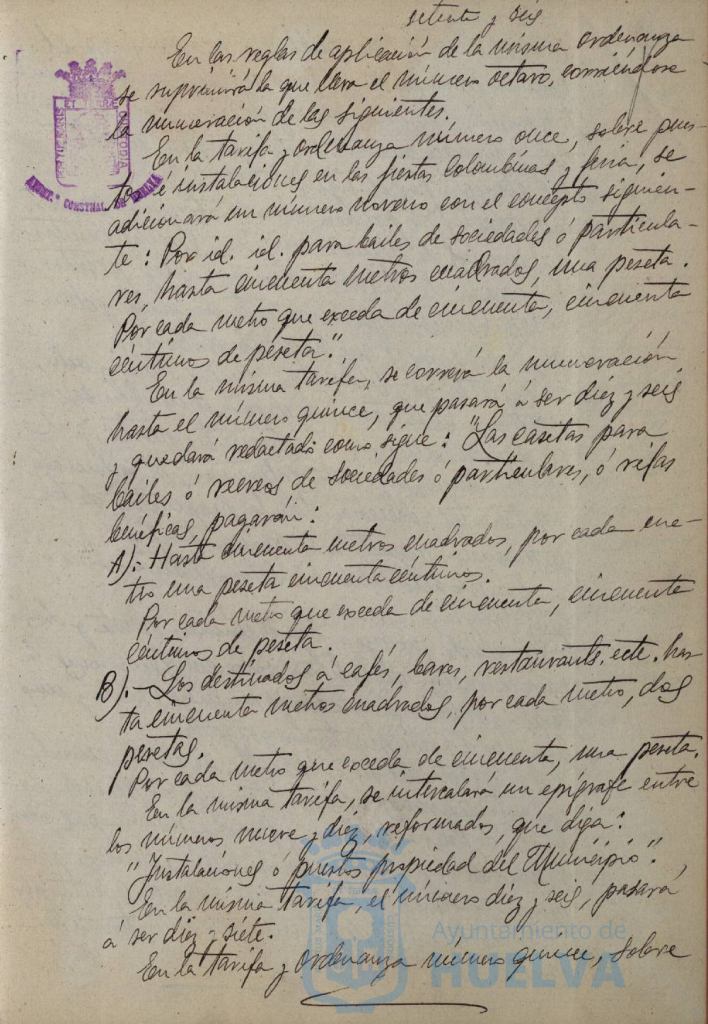 setenta y seis
En las reglas de aplicación de la misma ordenanza
se suprimirá la que lleva el número octavo, corriéndose
la numeración de las siguientes.
En la tarifa y ordenanza número once, sobre pues-
tos é instalaciones en las fiestas Colombinas y feria, se
adicionará un número noveno con el concepto siguien-
te: Por id. id. para bailes de sociedades ó particula-
res, hasta cincuenta metros cuadrados, una peseta.
Por cada metro que exceda de cincuenta, cincuenta
céntimos de peseta."
En la misma tarifa, se correrá la numeración
hasta el número quince, que pasará á ser diez y seis
y quedará redactado como sigue: "Las casetas para
bailes ó recreos de sociedades ó particulares, ó rifas
benéficas, pagarán:
A).- Hasta cincuenta metros cuadrados, por cada me-
tro una peseta cincuenta céntimos.
Por cada metro que exceda de cincuenta, cincuenta
céntimos de peseta.
B).- Los destinados á cafés, bares, restaurants, ecte. has-
ta cincuenta metros cuadrados, por cada metro, dos
pesetas.
Por cada metro que exceda de cincuenta, una peseta.
En la misma tarifa, se intercalará un epígrafe entre
los números nueve y diez, reformados, que diga:
"Instalaciones ó puestos propiedad del Municipio".
En la misma tarifa, el número diez y seis, pasará
á ser diez y siete.
En la tarifa y ordenanza número quince, sobre
Ayuntamiento de
HUELVA